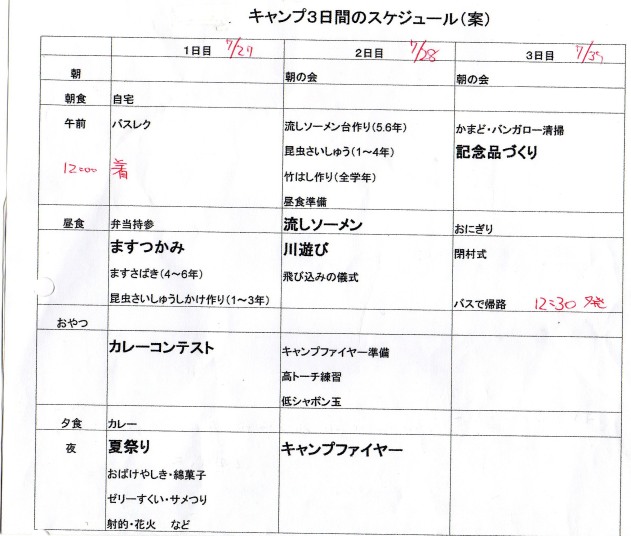 キャンプ3日間のスケジュール(案)
1日目 7/27 2日目 7/28 3日目
朝 朝の会 朝の会
朝食 自宅
午前 バスレク 流しソーメン台作り(5.6年) かまど・バンガロー清掃
昆虫さいしゅう(1～4年) 記念品づくり
12:00 着 竹はし作り(全学年)
昼食準備
昼食 弁当持参 流しソーメン おにぎり
ますつかみ 川遊び 閉村式
ますさばき(4～6年) 飛び込みの儀式
昆虫さいしゅうしかけ作り(1～3年) バスで帰路 12:30 発
おやつ
カレーコンテスト キャンプファイヤー準備
高トーチ練習
低シャボン玉
夕食 カレー
夜 夏祭り キャンプファイヤー
おばけやしき・綿菓子
ゼリーすくい・サメつり
射的・花火 など